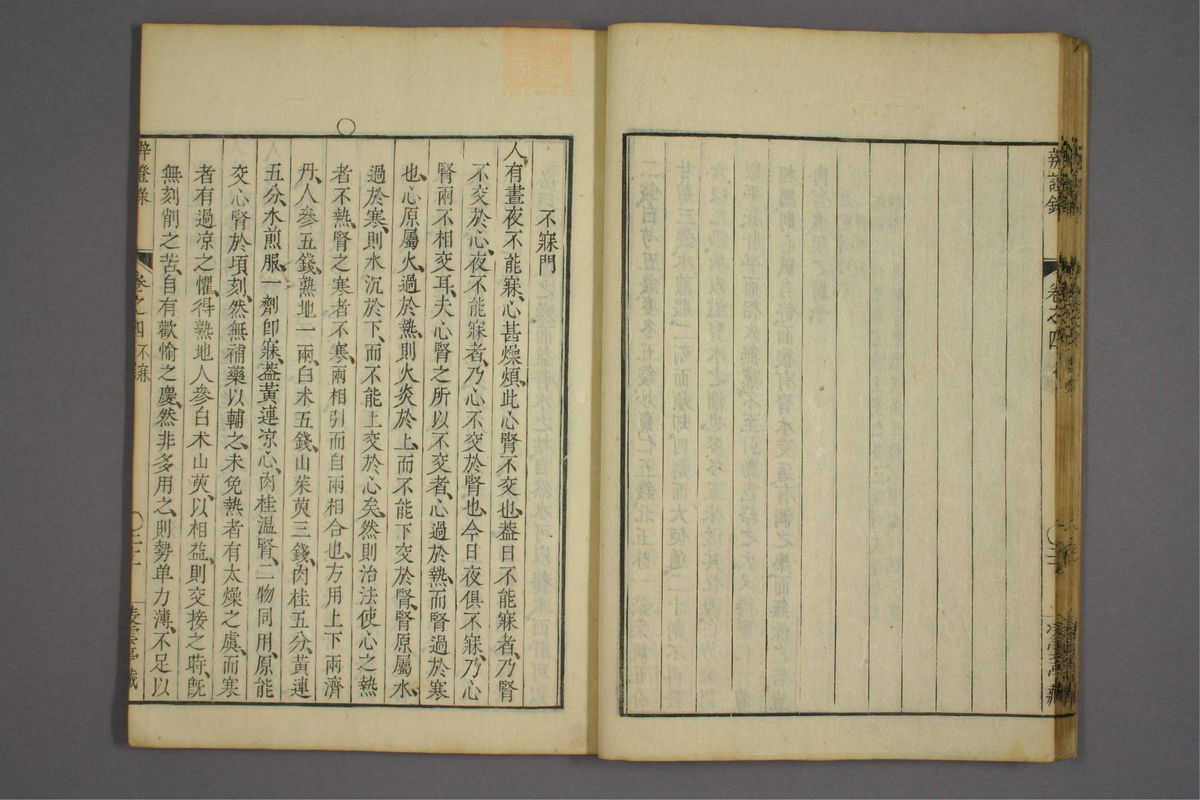 辨證錄 卷之四
不寐門
人有晝夜不能寐、心甚燥煩、此心腎不交也、葢日不能寐者、乃腎
不交於心、夜不能寐者、乃心不交於腎也、今日夜俱不寐、乃心
腎兩不相交耳、夫心腎之所以不交者、心過於熱、而腎過於寒
也、心原屬火、過於熱、則火炎於上、而不能下交於腎、腎原屬水、
過於寒、則水沉於下、而不能上交於心矣、然則治法、使心之熱
者不熱、腎之寒者不寒、兩相引而自兩相合也、方用上下兩濟
丹、人參五錢、熟地一兩、白术五錢、山茱萸三錢、肉桂五分、黃連
五分、水煎服、一劑卽寐、葢黃連涼心、肉桂溫腎、二物同用、原能
交心腎於頃刻、然無補藥以輔之、未免熱者有太燥之虞、而寒
者有過凉之懼、得熟地人參白术山萸、以相益、則交接之時、旣
無刻削之苦、自有歡愉之慶、然非多用之、則勢单力薄、不足以
辛證彔 卷之四 不寐